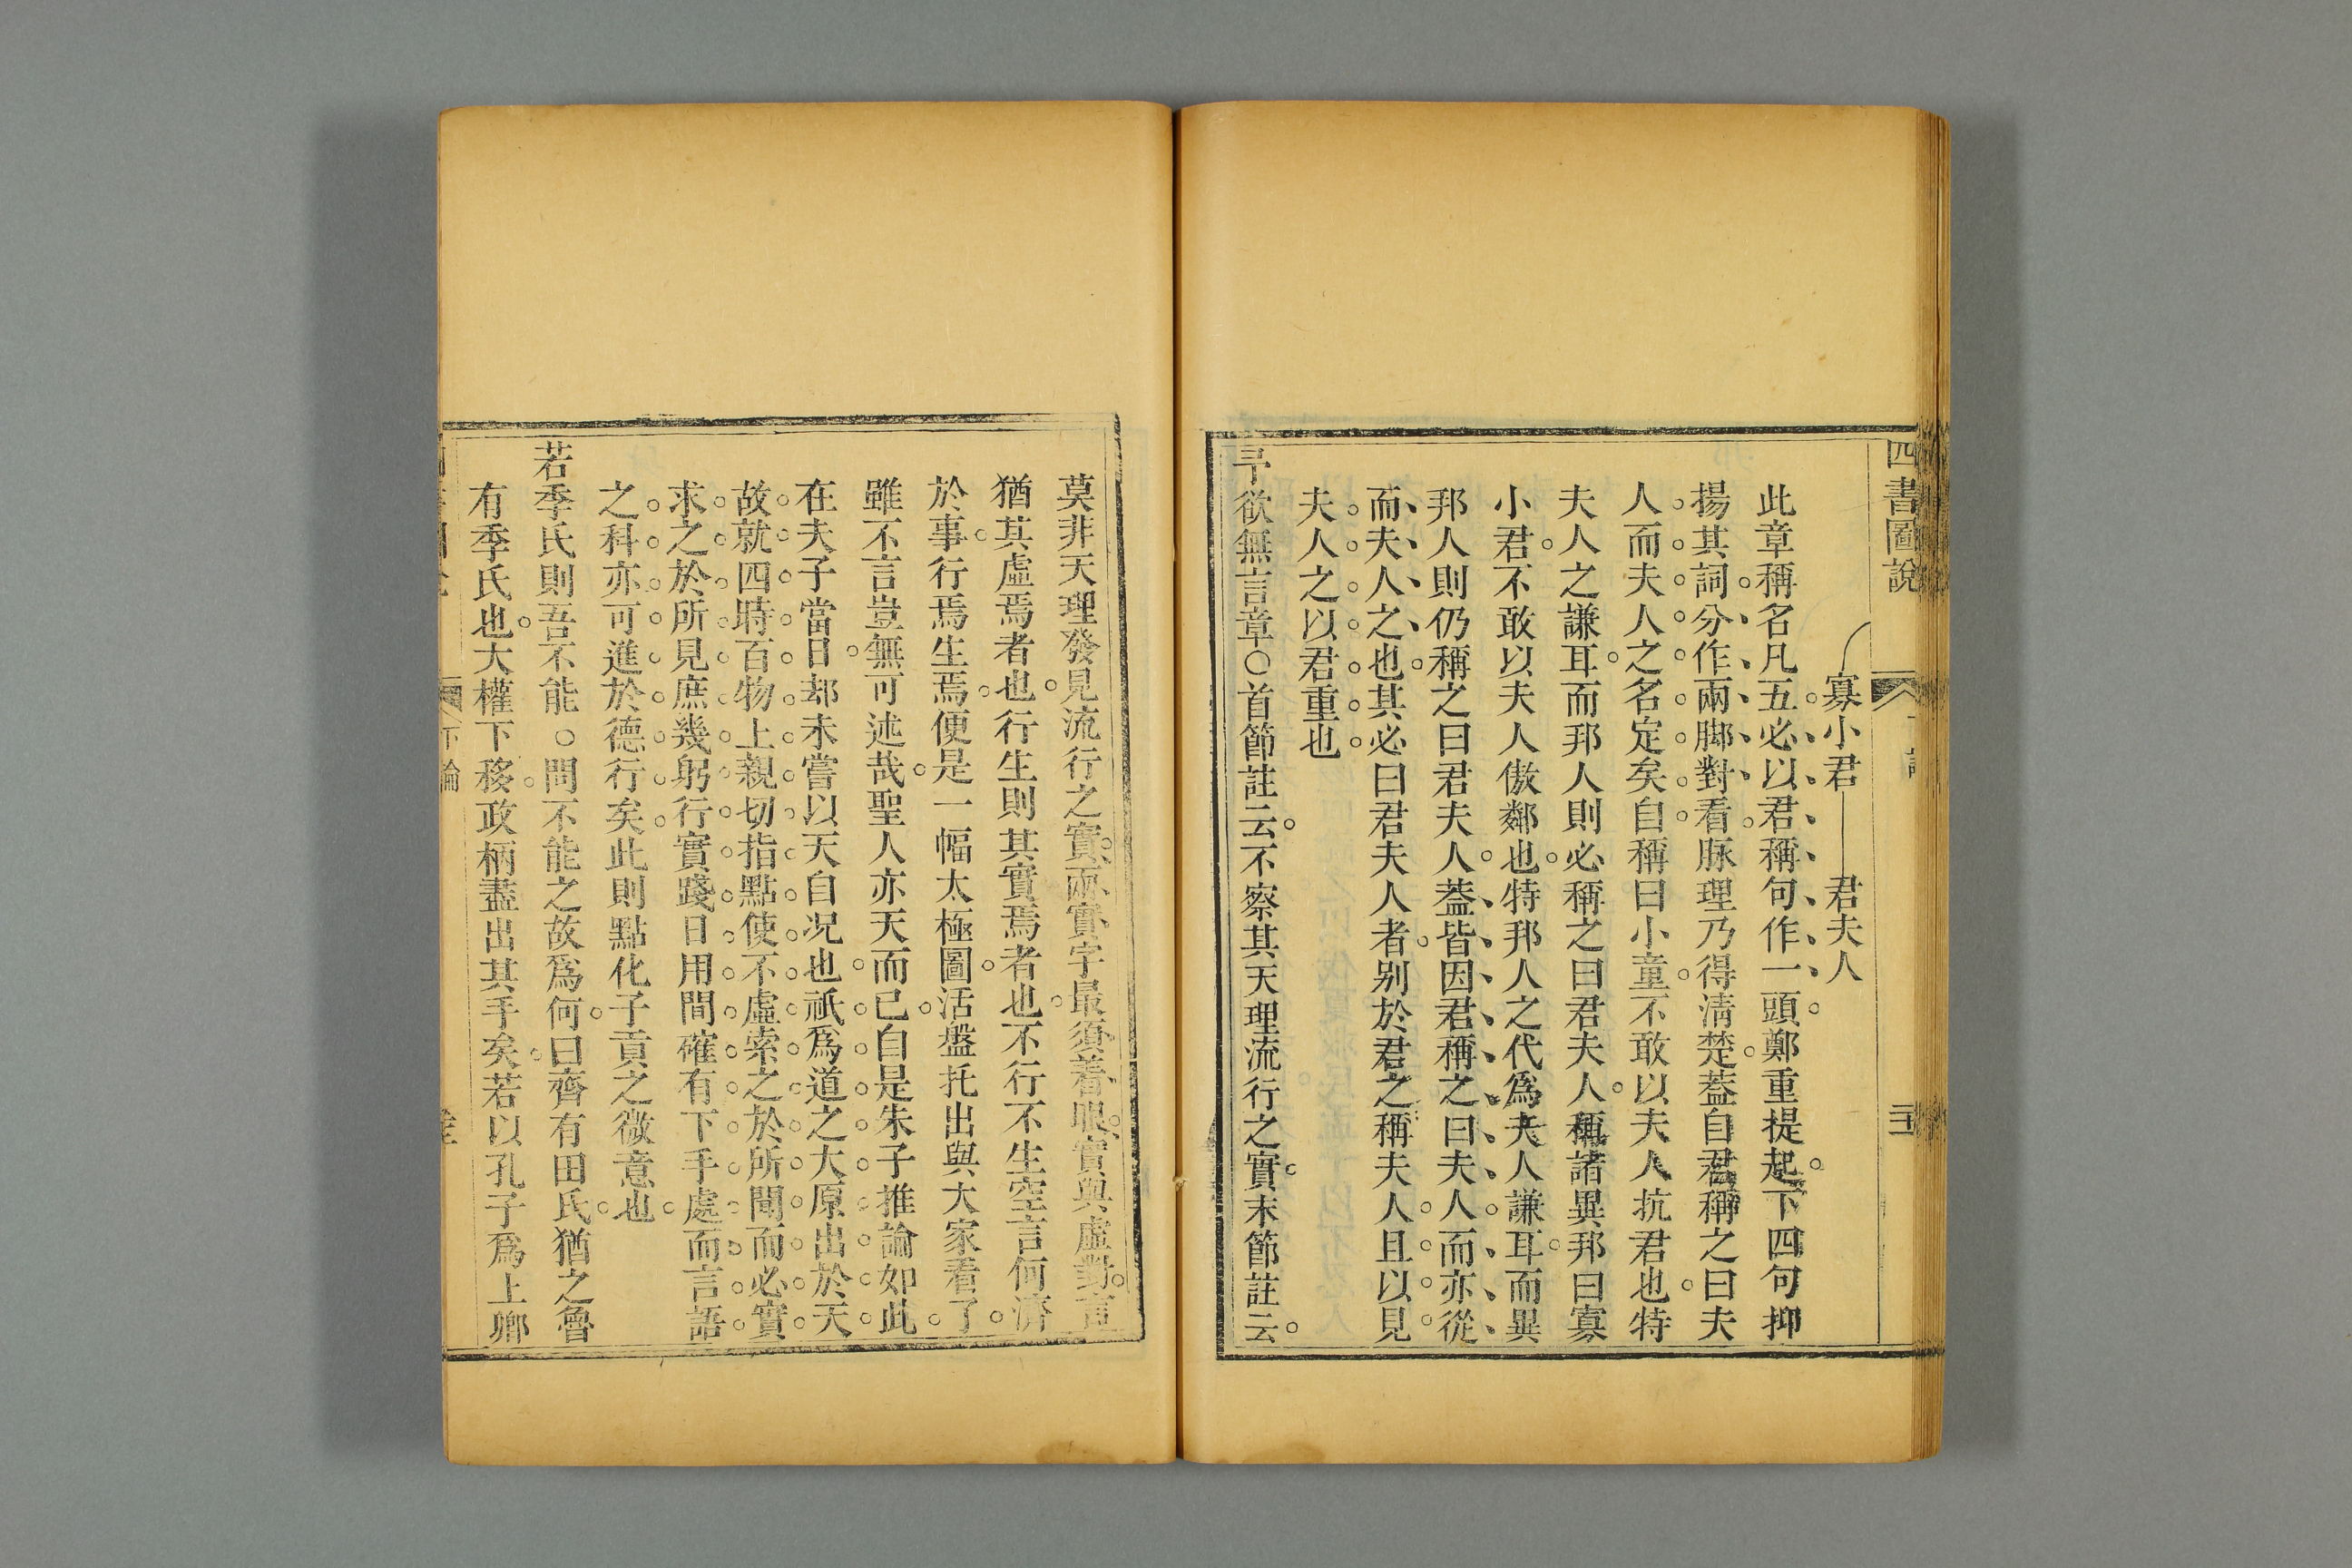 四書圖說
寡小君 君夫人
此章稱名凡五必以君稱句作一頭鄭重提起下四句抑
揚其詞分作兩脚對看脉理乃得清楚葢自君稱之曰夫
人而夫人之名定矣自稱曰小童不敢以夫人抗君也特
夫人之謙耳而邦人則必稱之曰君夫人稱諸異邦曰寡
小君不敢以夫人傲鄰也特邦人之代爲夫人謙耳而異
邦人則仍稱之曰君夫人葢皆因君稱之曰夫人而亦從
而夫人之也其必曰君夫人者别於君之稱夫人且以見
夫人之以君重也
予欲無言章○首節註云不察其天理流行之實末節註云
莫非天理發見流行之實兩實字最須着眼實與虛對言
猶其虛焉者也行生則其實焉者也不行不生空言何濟
於事行焉生焉便是一幅太極圖活盤托出與大家看了
雖不言豈無可述哉聖人亦天而已自是朱子推論如此
在夫子當日却未嘗以天自况也祇爲道之大原出於天
故就四時百物上親切指點使不虛索之於所聞而必實
求之於所見庶幾躬行實踐日用間確有下手處而言語
之科亦可進於德行矣此則點化子貢之微意也
若季氏則吾不能○問不能之故爲何曰齊有田氏猶之魯
有季氏也大權下移政柄盡出其手矣若以孔子爲上卿
下論